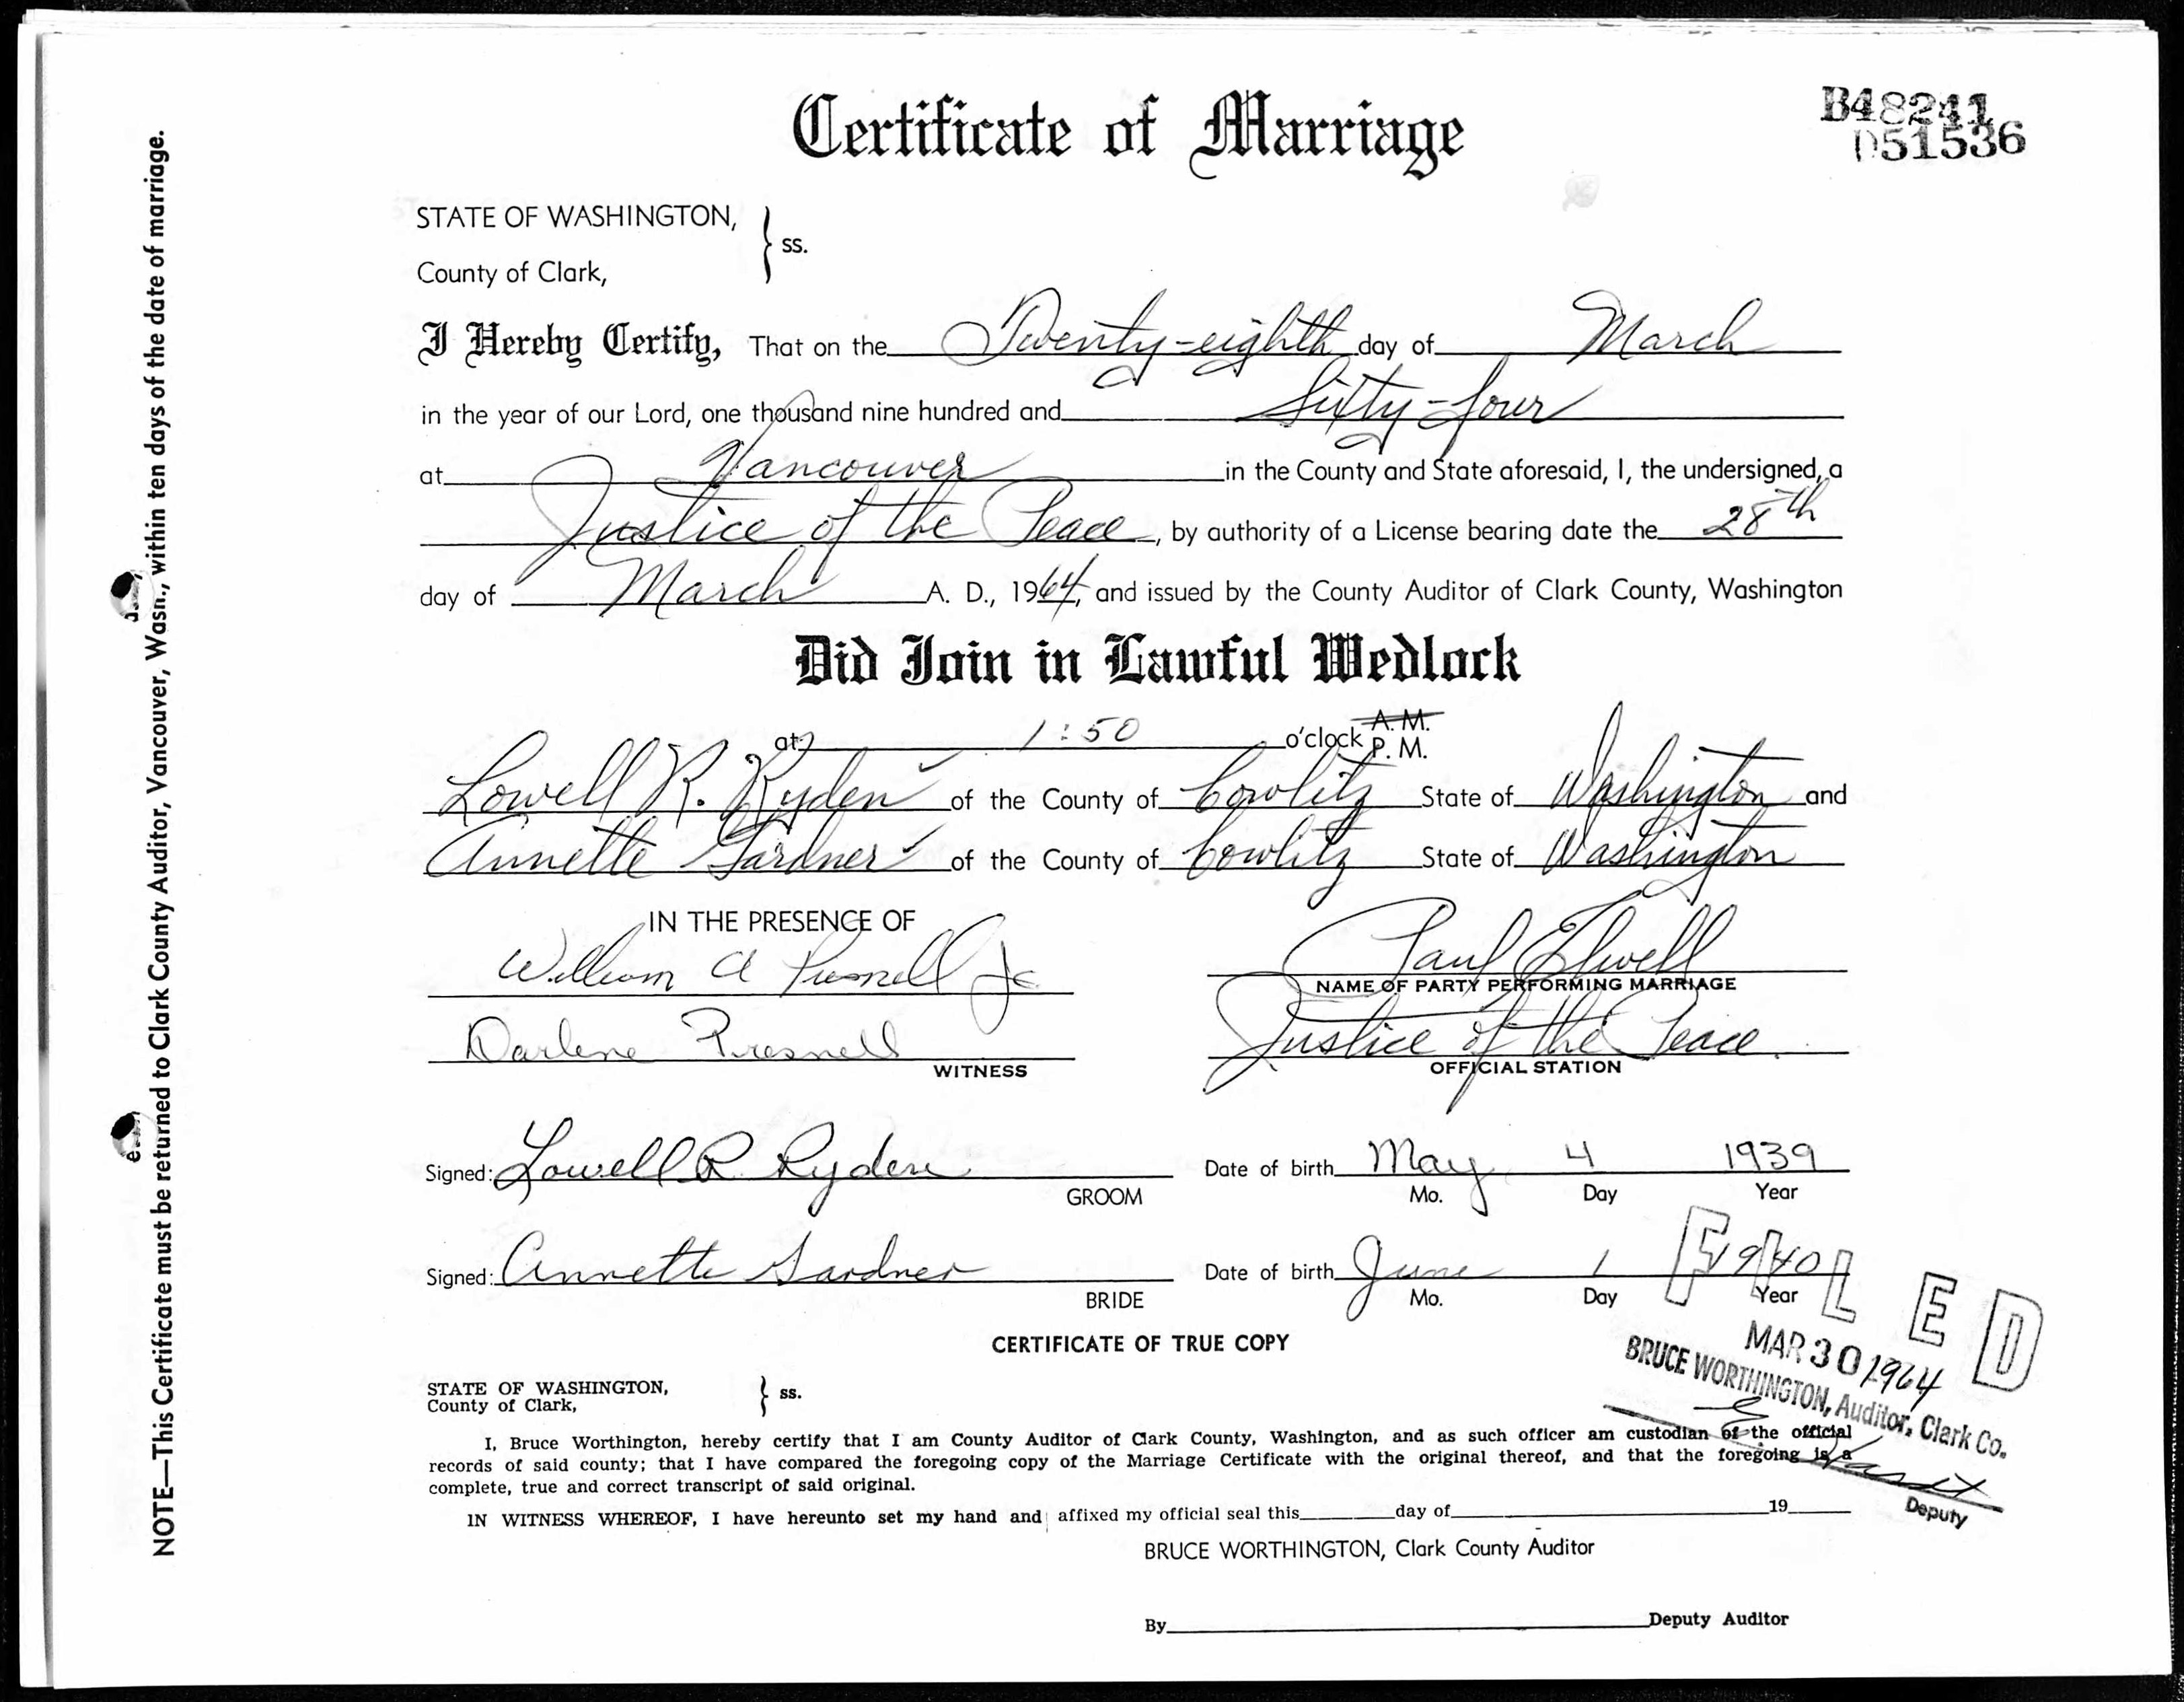 Certificate of Marriage
B48241
D51536
STATE OF WASHINGTON,
County of Clark,
} ss.
I Hereby Certify, That on the Twenty-eighth day of March
in the year of our Lord, one thousand nine hundred and Sixty-four
at Vancouver in the County and State aforesaid, I, the undersigned, a
Justice of the Peace, by authority of a License bearing date the 28th
day of March A. D., 1964, and issued by the County Auditor of Clark County, Washington
Did Join in Lawful Wedlock
at 1:50 o'clock A.M.
P. M.
Lowell R. Ryden of the County of Cowlitz State of Washington and
Annette Gardner of the County of Cowlitz State of Washington
IN THE PRESENCE OF
William A Presnell Jr
Darlene Presnell
WITNESS
Paul Elwell
NAME OF PARTY PERFORMING MARRIAGE
Justice of the Peace
OFFICIAL STATION
Signed: Lowell R Ryden
GROOM
Date of birth May 4 1939
Mo. Day Year
Signed: Annette Gardner
BRIDE
Date of birth June 1 1940
Mo. Day Year
FILED
MAR 30 1964
BRUCE WORTHINGTON, Auditor, Clark Co.
Deputy
CERTIFICATE OF TRUE COPY
STATE OF WASHINGTON,
County of Clark,
} ss.
I, Bruce Worthington, hereby certify that I am County Auditor of Clark County, Washington, and as such officer am custodian of the official
records of said county; that I have compared the foregoing copy of the Marriage Certificate with the original thereof, and that the foregoing is a
complete, true and correct transcript of said original.
IN WITNESS WHEREOF, I have hereunto set my hand and affixed my official seal this day of 19
BRUCE WORTHINGTON, Clark County Auditor
By Deputy Auditor
NOTE—This Certificate must be returned to Clark County Auditor, Vancouver, Wasn., within ten days of the date of marriage.